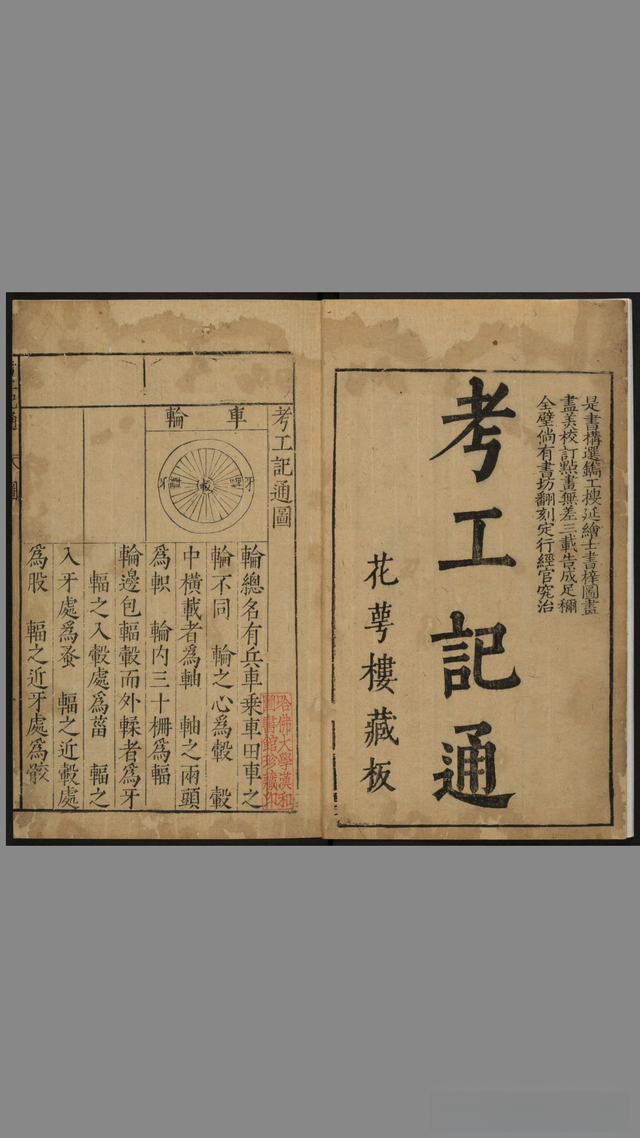 是書構選鐫工搜延繪士書梓圖畫
盡美校訂點畫無差三載告成足稱
全璧倘有書坊翻刻定行經官究治
考工記通
花萼樓藏板
考工記通圖
車輪
牙
輻
轂
輻
牙
輪總名有兵車乘車田車之
輪不同 輪之心爲轂 轂
中橫載者爲軸 軸之兩頭
爲軹 輪内三十柵爲輻
輪邊包輻轂而外輮者爲牙
輻之入轂處爲菑 輻之
入牙處爲蚤 輻之近轂處
爲股 輻之近牙處爲骹
哈佛大學漢和
圖書館珍藏印